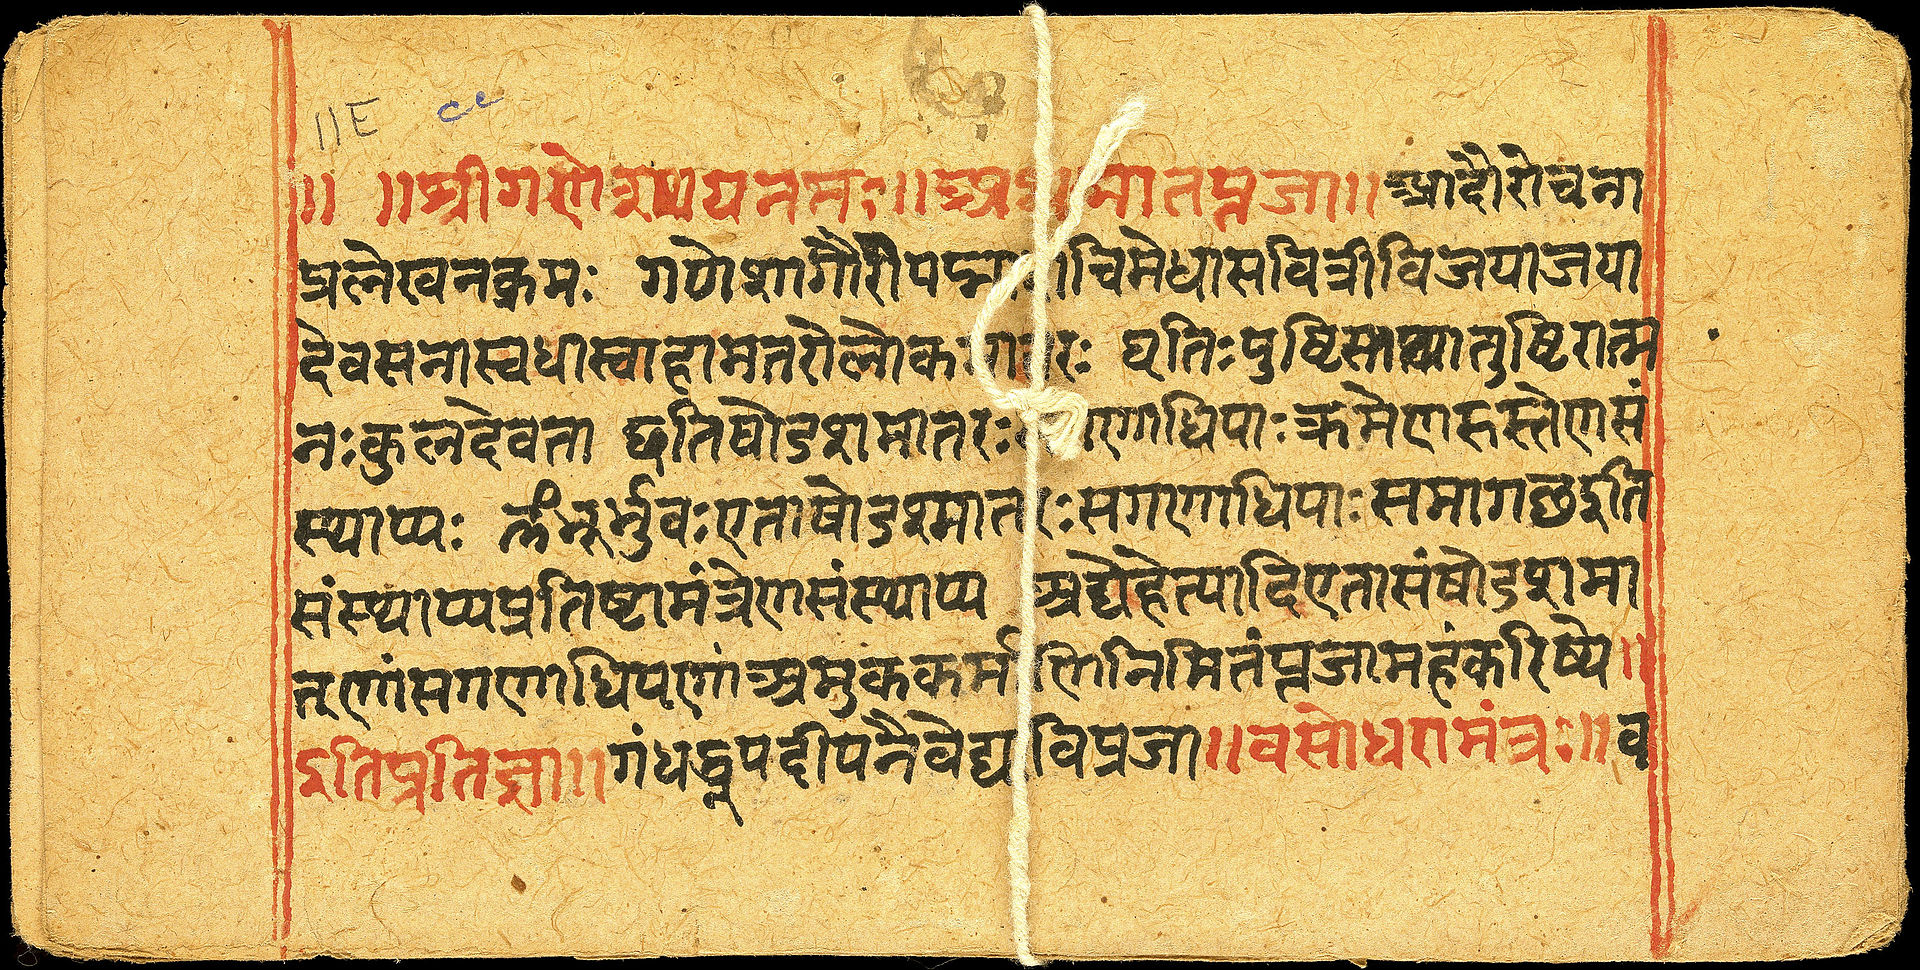 11E ce
॥ ॥श्रीगणेशायनमः॥अथमातपूजा॥आदौरोचना
प्रलेखनक्रमः गणेशागौरीपद्माशचिमेधासवित्रीविजयाजया
देवसनास्वधास्वाहामतरोलोकमातरः धृतिःपुष्टिस्तथातुष्टिरात्म
नःकुलदेवता इतिषोडशमातरः गणाधिपाःक्रमेणहस्तेणसं
स्थाप्यः ॐभूर्भुवःएताषोडश्मातरःसगणाधिपाःसमागछइति
संस्थाप्यप्रतिष्टामंत्रेणसंस्थाप्य अद्येहेत्यादिएतासंषोडशमा
तृणांसगणाधिपणांअमुककर्माणिनिमितंपूजामहंकरिष्ये॥
इतिप्रतिज्ञा॥गंधधूपदीपनैवेद्याविपूजा॥वसोधरामंत्रः॥व